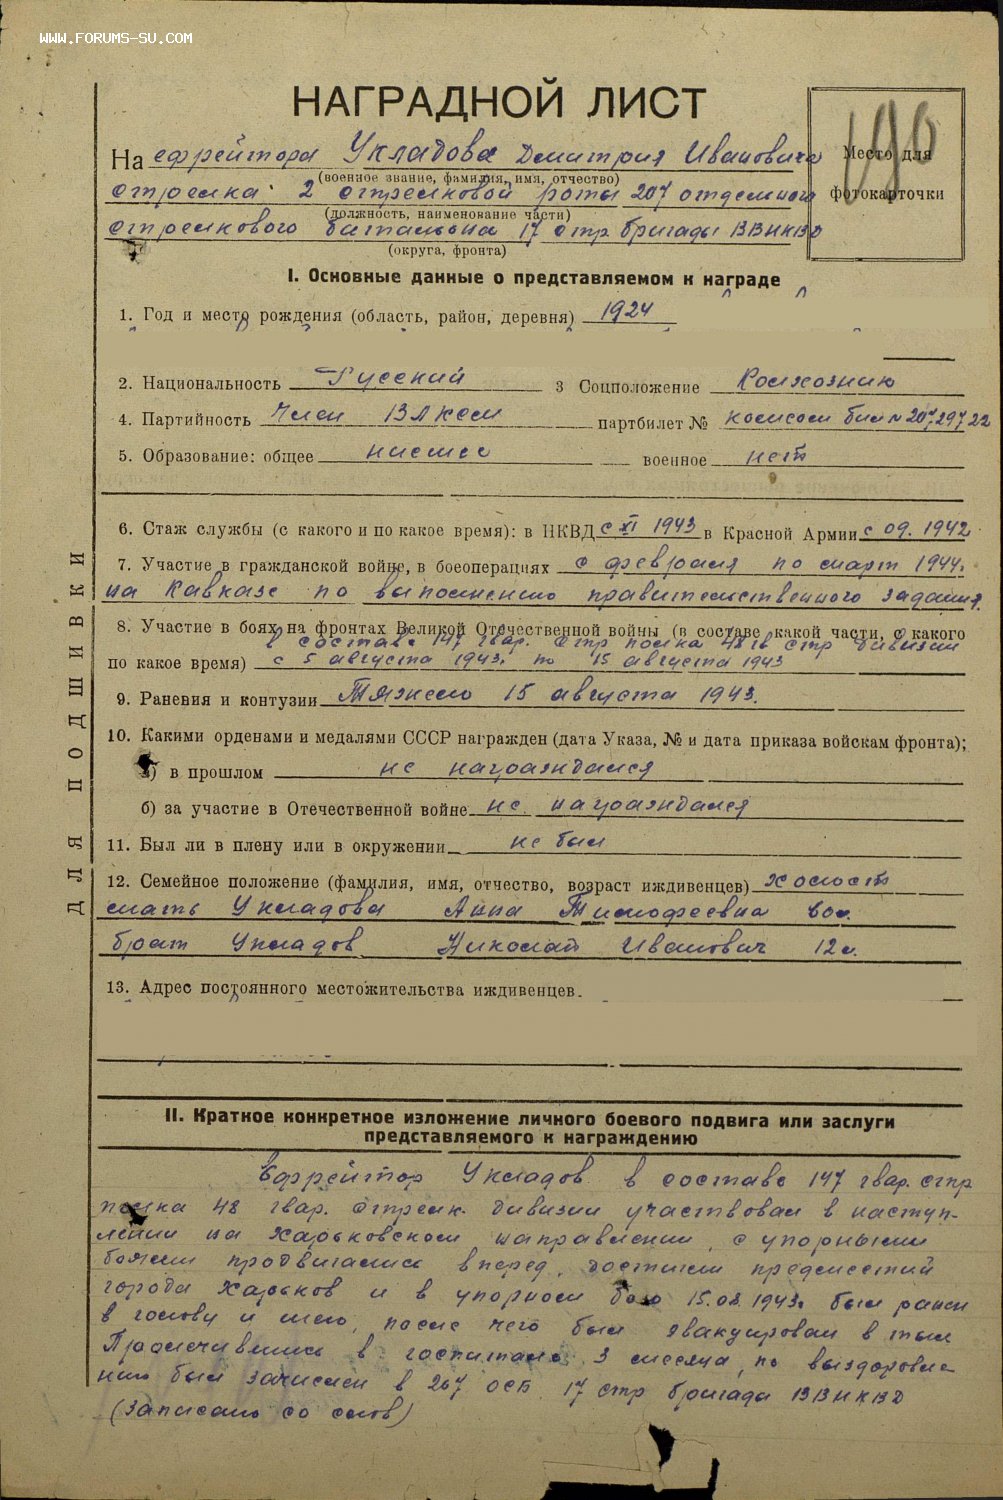 WWW.FORUMS-SU.COM
НАГРАДНОЙ ЛИСТ
190
Место для
фотокарточки
На ефрейтора Укладова Дмитрия Ивановича
(военное звание, фамилия, имя, отчество)
стрелка 2 стрелковой роты 207 отдельного
(должность, наименование части)
стрелкового батальона 17 стр. бригады ВВНКВД
(округа, фронта)
I. Основные данные о представляемом к награде
1. Год и место рождения (область, район, деревня) 1924
2. Национальность Русский 3 Соцположение Колхозник
4. Партийность Член ВЛКСМ партбилет № комсом бил №20729722
5. Образование: общее низшее военное нет
6. Стаж службы (с какого и по какое время): в НКВД с XI 1943 в Красной Армии с 09. 1942
7. Участие в гражданской войне, в боеоперациях с февраля по март 1944г.
на Кавказе по выполнению правительственного задания.
8. Участие в боях на фронтах Великой Отечественной войны (в составе какой части, с какого
в составе 147 гвар. стр полка 48 гв стр дивизии
по какое время) с 5 августа 1943г. по 15 августа 1943
9. Ранения и контузии Тяжело 15 августа 1943.
10. Какими орденами и медалями СССР награжден (дата Указа, № и дата приказа войскам фронта);
а) в прошлом не награждался
б) за участие в Отечественной войне не награждался
11. Был ли в плену или в окружении не был
12. Семейное положение (фамилия, имя, отчество, возраст иждивенцев) холост
мать Укладова Анна Тимофеевна
брат Укладов Николай Иванович 12л.
13. Адрес постоянного местожительства иждивенцев.
ДЛЯ ПОДШИВКИ
II. Краткое конкретное изложение личного боевого подвига или заслуги
представляемого к награждению
Ефрейтор Укладов в составе 147 гвар. стр
полка 48 гвар. стрелк. дивизии участвовал в наступ-
лении на Харьковском направлении, с упорными
боями продвигались вперед, достигли предместий
города Харьков и в упорном бою 15.08.1943г. был ранен
в голову и шею, после чего был эвакуирован в тыл
Пролечившись в госпитале 3 месяца, по выздоровле-
нию был зачислен в 207 ОСБ 17 стр бригада ВВНКВД
(Записано со слов)